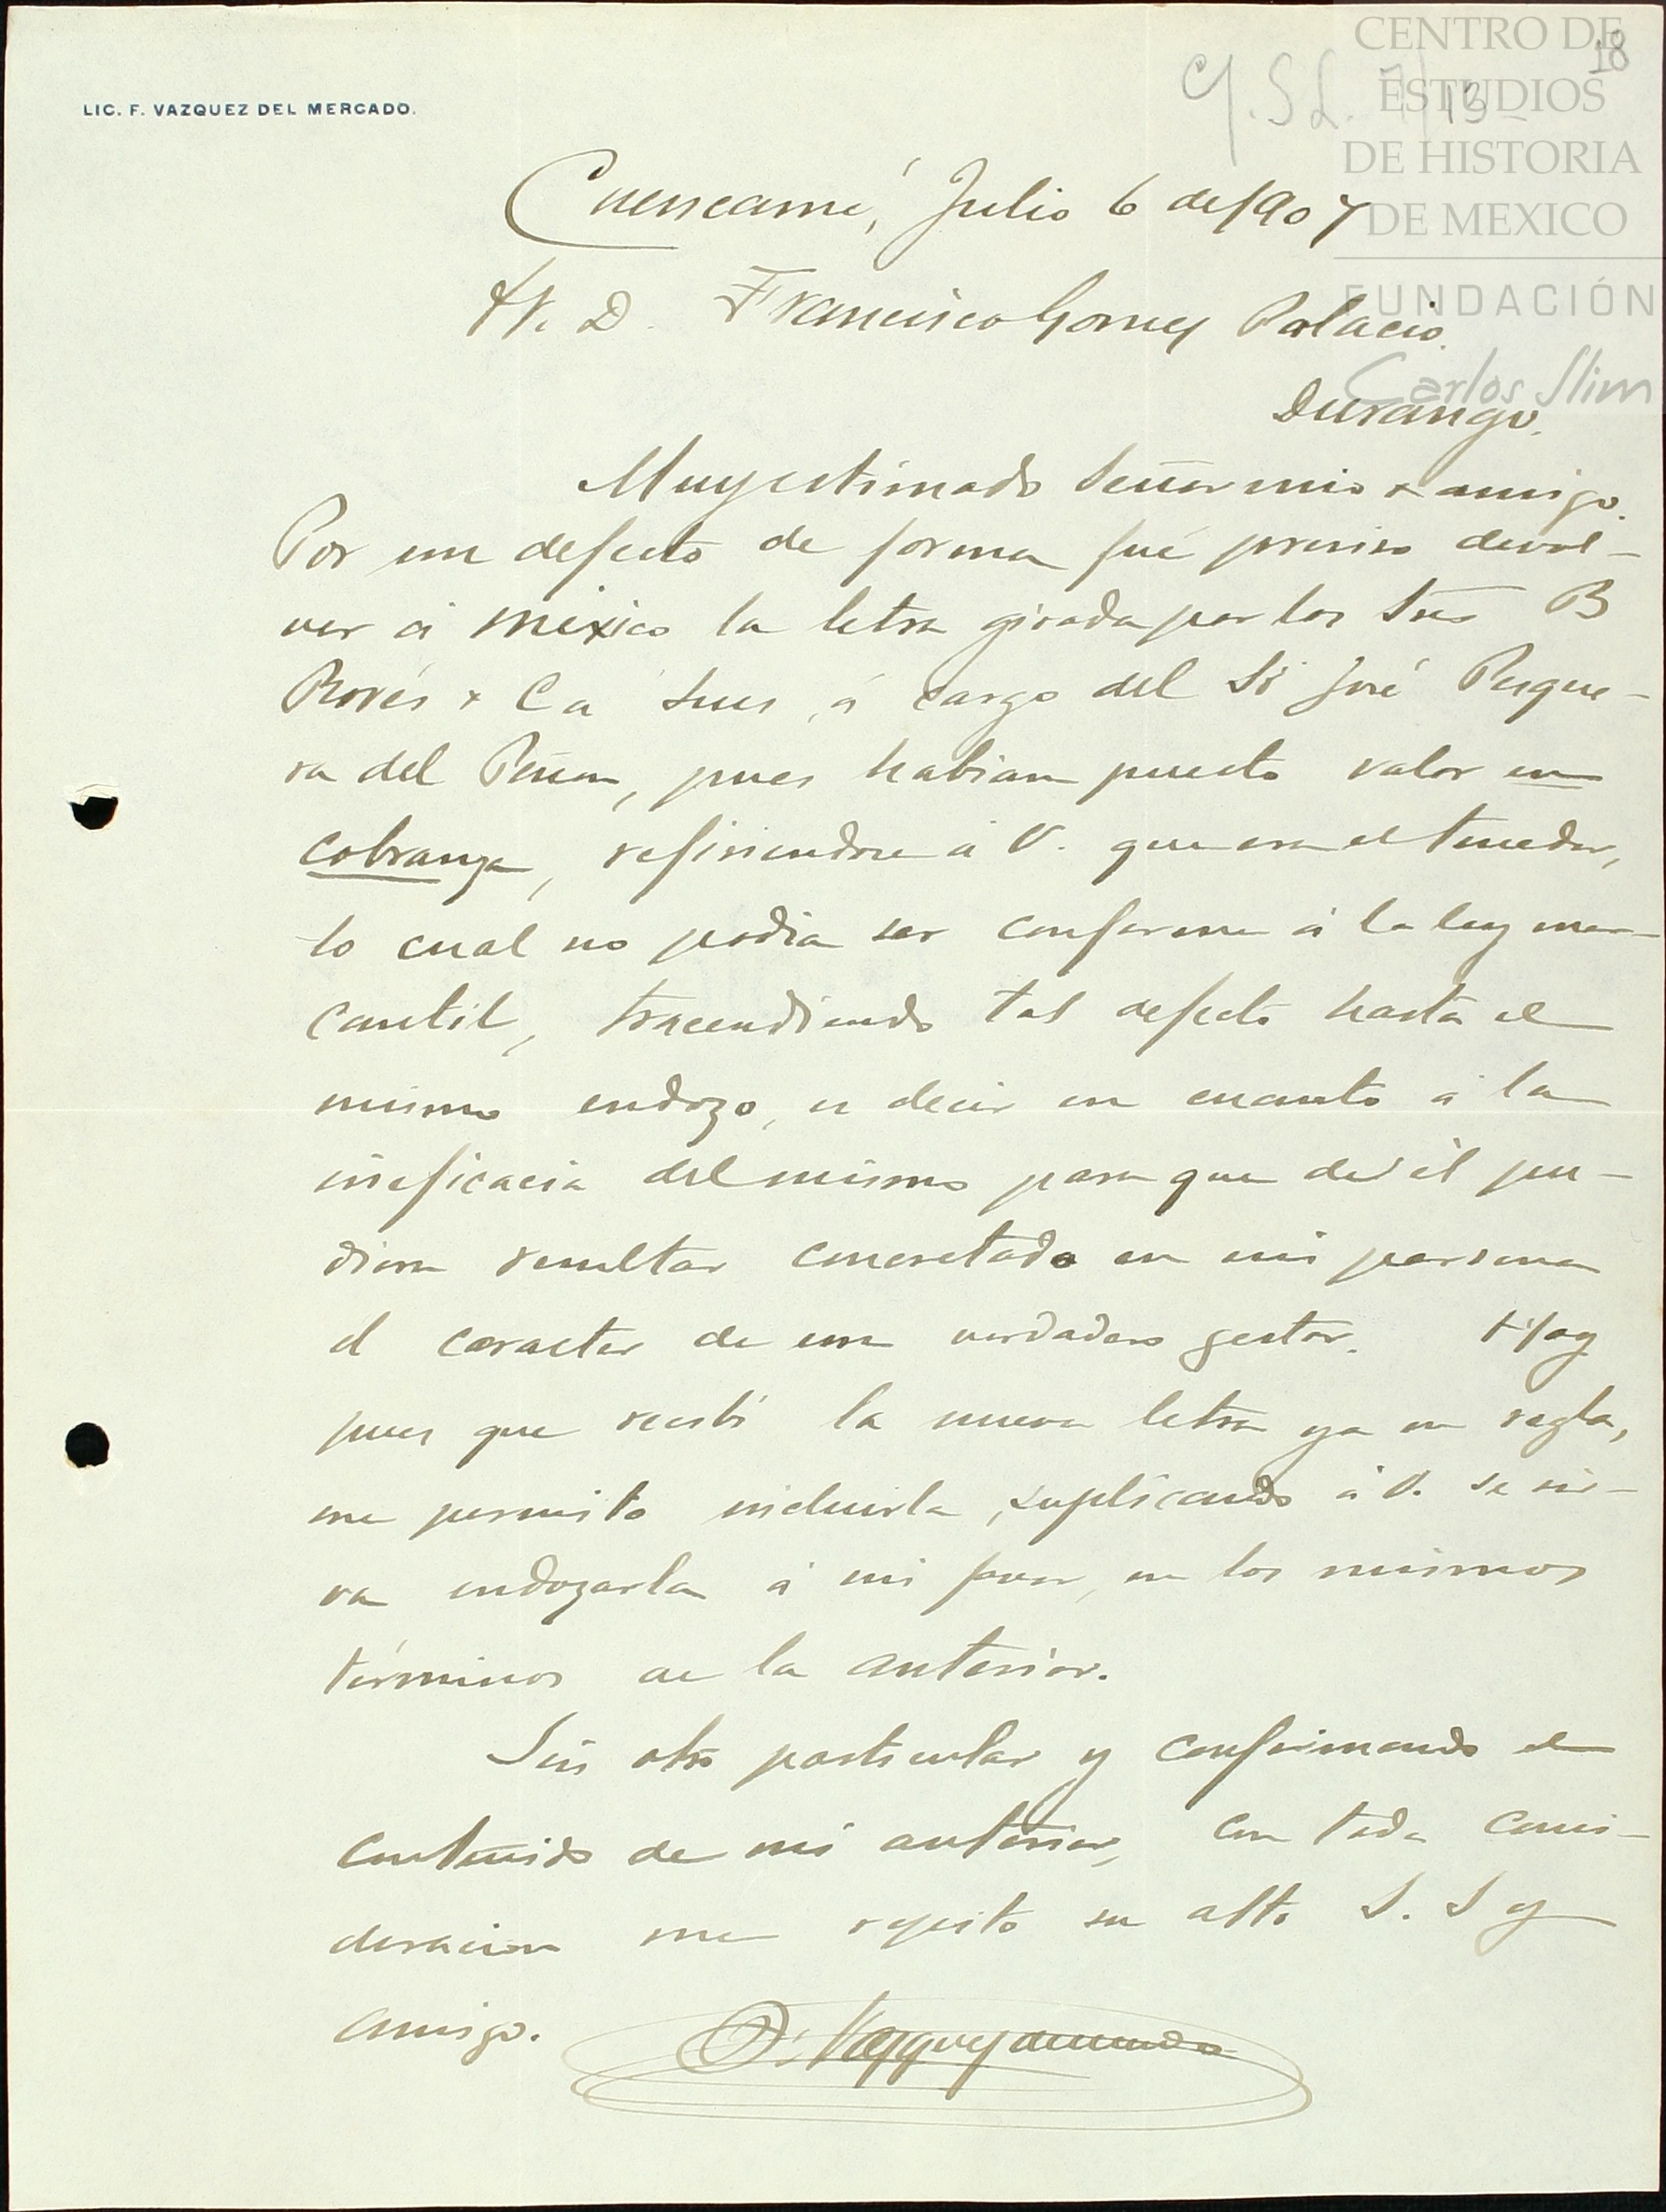 CENTRO DE
ESTUDIOS
DE HISTORIA
DE MEXICO
FUNDACIÓN
Carlos Slim
18
LIC. F. VAZQUEZ DEL MERCADO.
Cuencamé, Julio 6 de 1907
Sr. D. Francisco Gomez Palacio.
Durango.
Muy estimado Señor mio & amigo.
Por un defecto de forma fué preciso devol-
ver á México la letra girada por los Sres B
Rovés & Ca Sucs, á cargo del Sr José Pesque-
ra del Peñon, pues habian puesto valor en
cobranza, refiriendose á V. que era el tenedor,
lo cual no podia ser conforme á la ley mer-
cantil, trascendiendo tal defecto hasta el
mismo endozo, es decir en cuanto á la
ineficacia del mismo para que de él pu-
diera resultar concretado en mi persona
el caracter de un verdadero gestor. Hoy
pues que recibí la nueva letra ya en regla,
me permito incluirla, suplicando á V. se sir-
va endozarla á mi favor, en los mismos
términos de la anterior.
Sin otro particular y confirmando el
contenido de mi anterior, con toda consi-
deracion me repito su atto S. S y
amigo.
F. Vazquez del Mercado